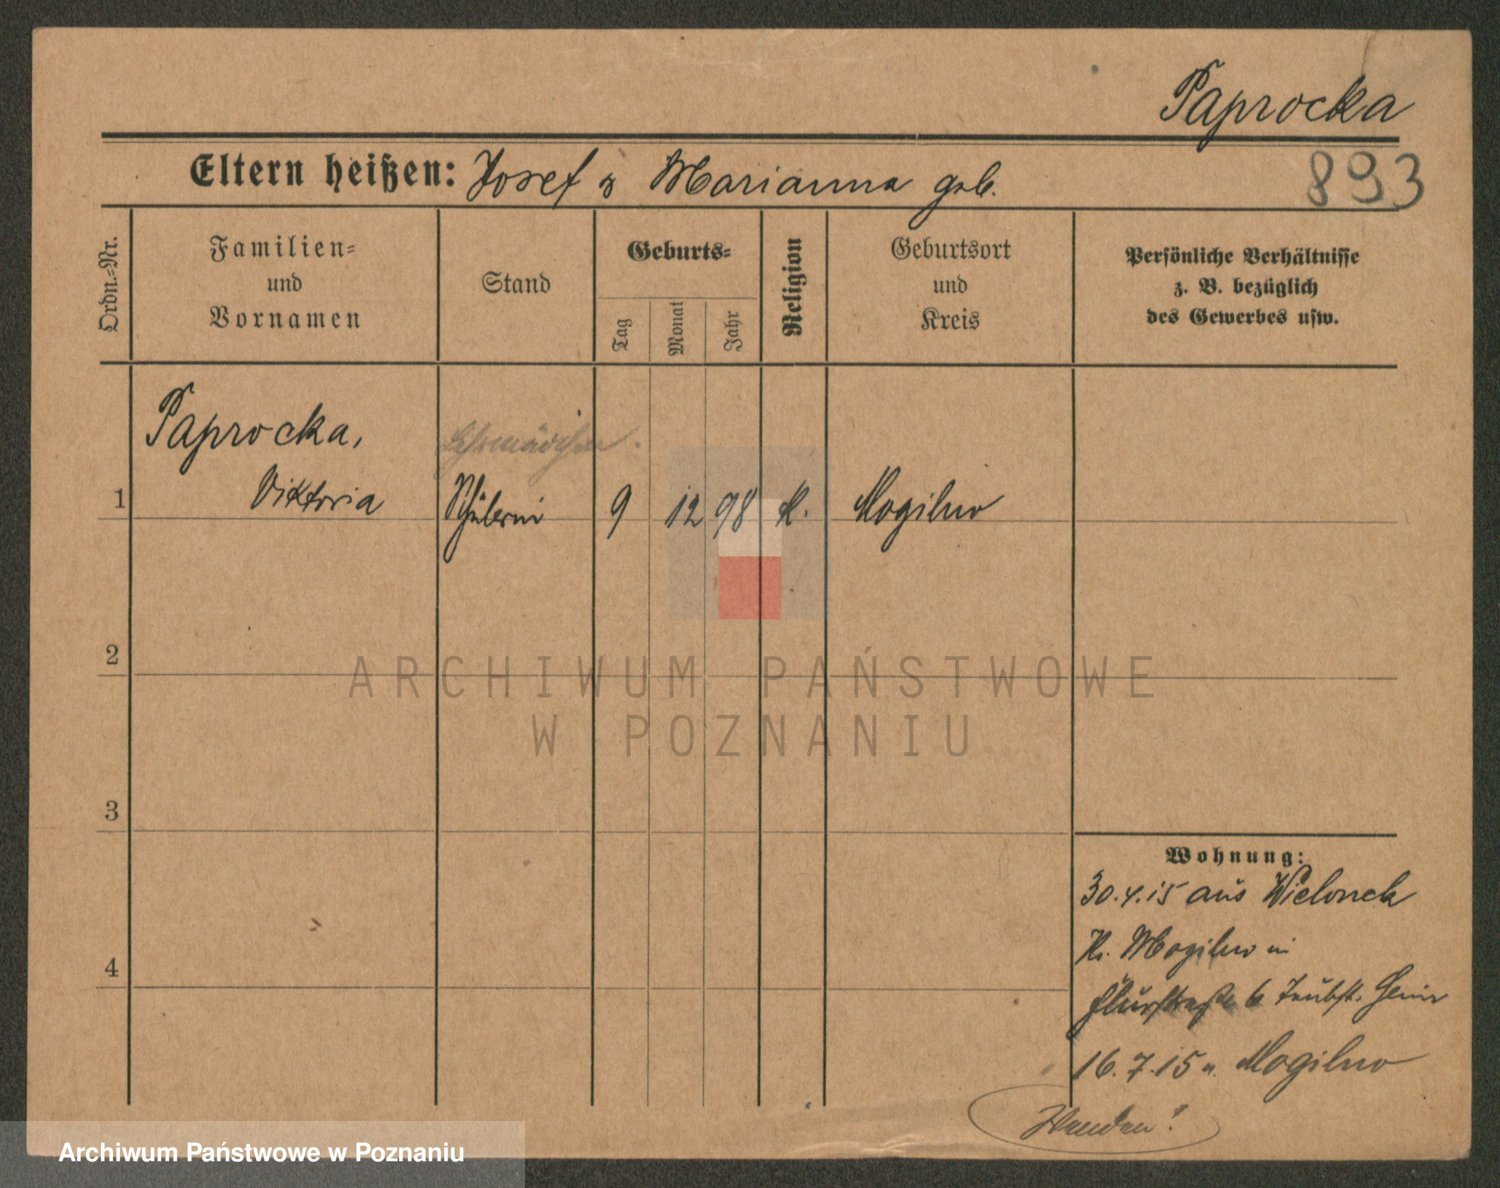 Paprocka
893
Eltern heißen: Josef u Marianna geb.
Ordn.-Nr.
Familien-
und
Vornamen
Stand
Geburts-
Tag
Monat
Jahr
Religion
Geburtsort
und
Kreis
Persönliche Verhältnisse
z. B. bezüglich
des Gewerbes usw.
Paprocka,
Lehrmädchen
1 Viktoria Schülerin 9 12 98 K. Mogilno
2
ARCHIWUM PAŃSTWOWE
W POZNANIU
3
4
Wohnung:
30.4.15 aus
Kr. Mogilno in
Flurstraße 6 Taubst.
16.7.15 n. Mogilno
Wenden!
Archiwum Państwowe w Poznaniu